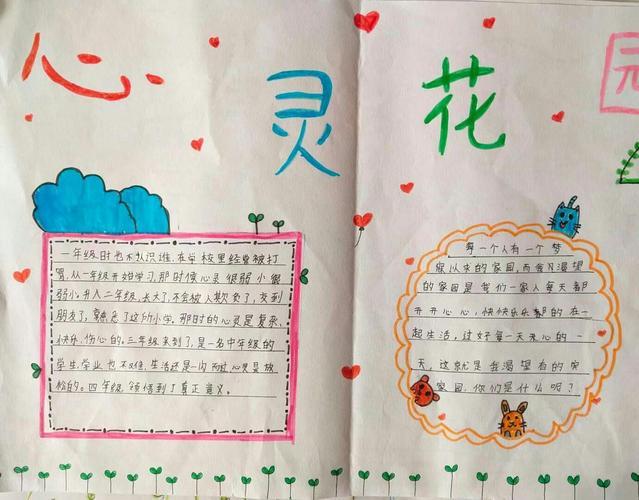 心灵花园
一年级时也不认识谁.在学校里经常被打
骂,从一年级开始学习,那时候心灵很弱小很
弱小.升入二年级,长大了,不会被人欺负了,交到
朋友了,熟悉了这所小学。那时的心灵是复杂、
快乐、伤心的。三年级来到了,是一名中年级的
学生,学业也不难.生活还是一如而过心灵是放
松的。四年级,领悟到了真正意义。
每一个人有一个梦
寐以求的家园,而我渴望
的家园是我们一家人每天都
开开心心,快快乐乐都的在一
起生活,过好每一天开心的一
天,这就是我渴望着的家
家园.你们是什么呢?